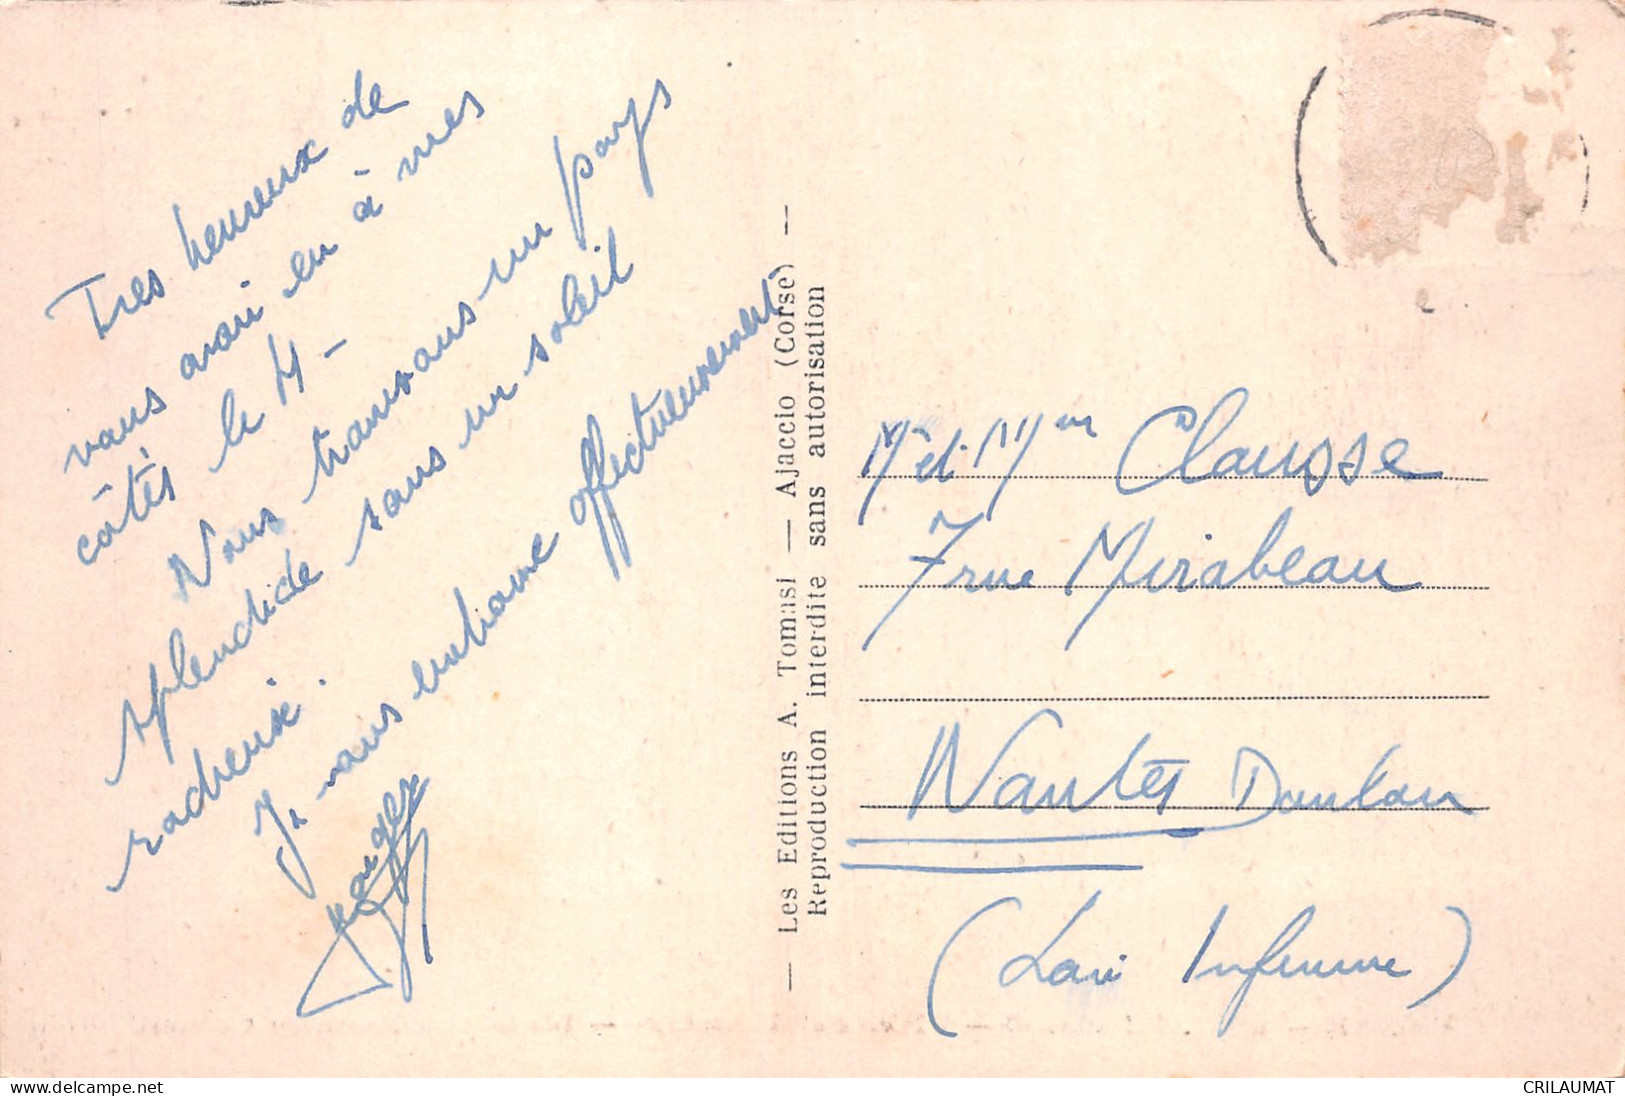 Tres heureux de
vous avoir eu à mes
côtés le 4 -
Nous traversons un pays
splendide sous un soleil
radieux.
Je vous embrasse affectueusement
— Les Editions A. Tomasi — Ajaccio (Corse) —
Reproduction interdite sans autorisation
Mr et Mme Clausse
7 rue Mirabeau
Nantes Doulon
(Loire Inférieure)
CRILAUMAT
www.delcampe.net